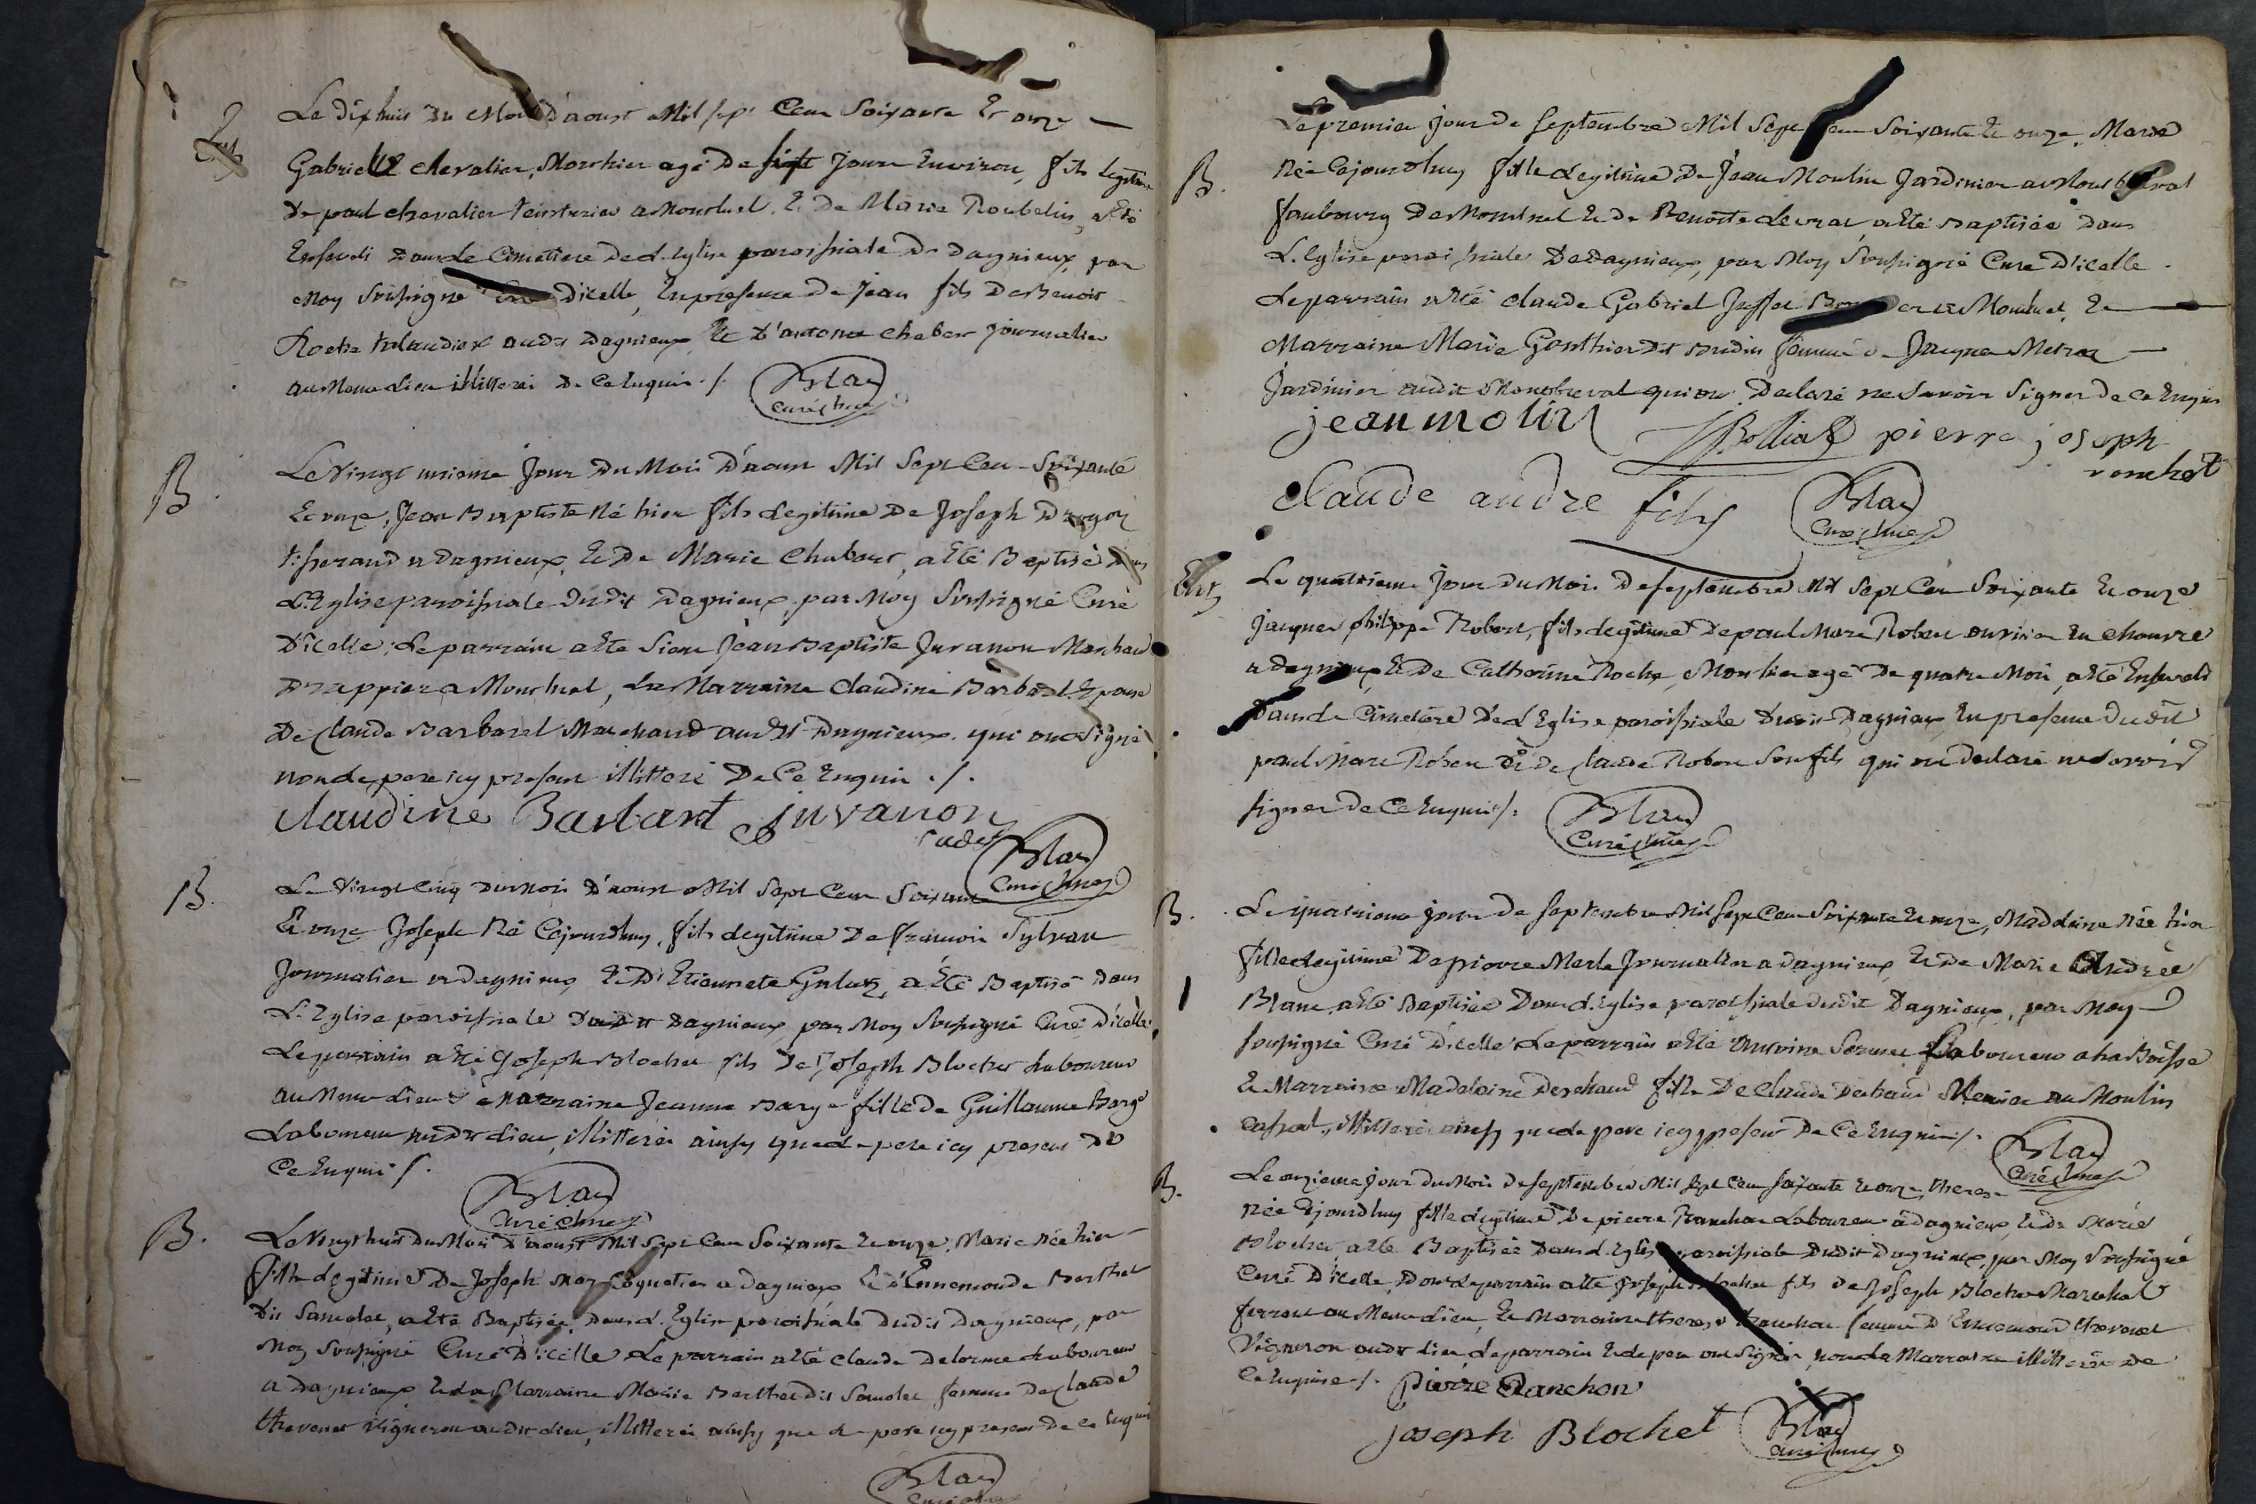 Le dix huit du Mois d'aoust Mil sept Cent Soixante Et onze
Gabriel chevalier, Mort hier agé De sept jours Environ, fils legitime
De paul chevalier teinturier a Montluel, Et De Marie Roubelin, a Eté
Enseveli dans Le Cimetiere De L'Eglise paroissiale De Dagnieux, par
Moy Soussigné Curé D'icelle, En presence De Jean fils De Benoit
Roche audit Dagnieux Et D'antoine chaber journalier
au Meme Lieu illitteré De Ce Enquis ./.
Blay
Curé
B
Le Vingt unieme Jour Du Mois D'aoust Mil Sept Cent Soixante
Et onze, Jean Baptiste Né hier fils Legitime De Joseph
tisserand a Dagnieux, Et De Marie Chabert, a Eté Baptisé dans
L'Eglise paroissiale dudit Dagnieux par Moy Soussigné Curé
D'icelle; Le parrain a Eté Sieur Jean Baptiste Juvanon Marchand
Drappier a Montluel, La Marraine Claudine Barbaret Epouse
De Claude Barbaret Marchand audit Dagnieux qui ont Signé
non le pere icy present illitteré De Ce Enquis ./.
Claudine Barbaret juvanon
cadet
Blay
Curé
B.
Le Vingt Cinq du Mois D'aoust Mil Sept Cent Soixante
Et onze Joseph Né Cejourdhuy, fils Legitime De francois Sylvan
Journalier a Dagnieux Et D'Etiennete, a Eté Baptisé dans
L'Eglise paroissiale dudit Dagnieux, par Moy Soussigné Curé D'icelle
Le parrain a Eté Joseph Blochet fils De Joseph Blochet Laboureur
au Meme Lieu & Marraine Jeanne Barge fille De Guillaume Barge
Laboureur audit Lieu, illitterés ainsy que le pere icy present De
Ce Enquis ./.
Blay
Curé
B.
Le Vingt huit Du Mois D'aoust Mil Sept Cent Soixante Et onze, Marie Née hier
fille Legitime De Joseph Coquetier a Dagnieux Et D'Ennemonde Berthet
Dit Samolet, a Eté Baptisée, dans L'Eglise paroissiale dudit Dagnieux, par
Moy Soussigné Curé D'icelle Le parrain a Eté Claude Delorme Laboureur
a Dagnieux Et La Marraine Marie Berthet dit Samolet femme De Claude
thevenet Vigneron audit Lieu, illitterés ainsy que le pere icy present De Ce Enquis
Blay
Curé
Le premier jour De Septembre Mil Sept Cent Soixante Et onze, Marie
B.
Née Cejourdhuy fille Legitime De Jean Moulin Jardinier a
faubourg De Montluel Et De Benoite Levrat a Eté baptisée dans
L'Eglise paroissiale De Dagnieux, par Moy Soussigné Curé D'icelle
Le parrain a Eté Claude Gabriel a Montluel, Et
Marraine Marie Gonthier Dit femme De Jacques
Jardinier audit qui ont Declaré ne Savoir Signer De Ce Enquis
jean molin J Bolliat pierre joseph
ronchet
Claude andre fils
Blay
Curé
Ent
Le quatrieme Jour Du Mois De Septembre Mil Sept Cent Soixante Et onze
Jacques philippe Robert, fils Legitime De paul Marc Robert ouvrier En chanvre
a Dagnieux, Et De Catherine Roche, Mort hier agé De quatre Mois, a Eté Enseveli
Dans Le Cimetiere De L'Eglise paroissiale dudit Dagnieux En presence Dudit
paul Marc Robert Et De Claude Robert Son fils qui ont Declaré ne Savoir
Signer De Ce Enquis ./.
Blay
Curé
B.
Le quatrieme jour De Septembre Mil Sept Cent Soixante Et onze, Madelaine Née hier
fille Legitime De pierre Merle Journalier a Dagnieux Et De Marie Andrée
Blanc, a Eté Baptisée Dans L'Eglise paroissiale dudit Dagnieux, par Moy
Soussigné Curé D'icelle Le parrain a Eté Antoine Laboureur a La Boisse
Et Marraine Madelaine Deschaud fille De Claude Deschaud Meunier au Moulin
illitterés ainsy que le pere icy present De Ce Enquis ./.
Blay
Curé
B.
Le onzieme Jour Du Mois De Septembre Mil Sept Cent Soixante Et onze, therese
Née Cejourdhuy fille Legitime De pierre Ranchon Laboureur a Dagnieux, Et De Marie
Blochet, a Eté Baptisée Dans L'Eglise paroissiale Dudit Dagnieux, par Moy Soussigné
Curé D'icelle, Dont Le parrain a Eté Joseph Blochet fils De Joseph Blochet Marechal
ferrant au Meme Lieu, Et Marraine therese Ranchon femme D'Ennemond thevenet
Vigneron audit Lieu, Le parrain Et Le pere ont Signé, non La Marraine illitterée De
Ce Enquise ./. pierre Ranchon
joseph Blochet
Blay
Curé